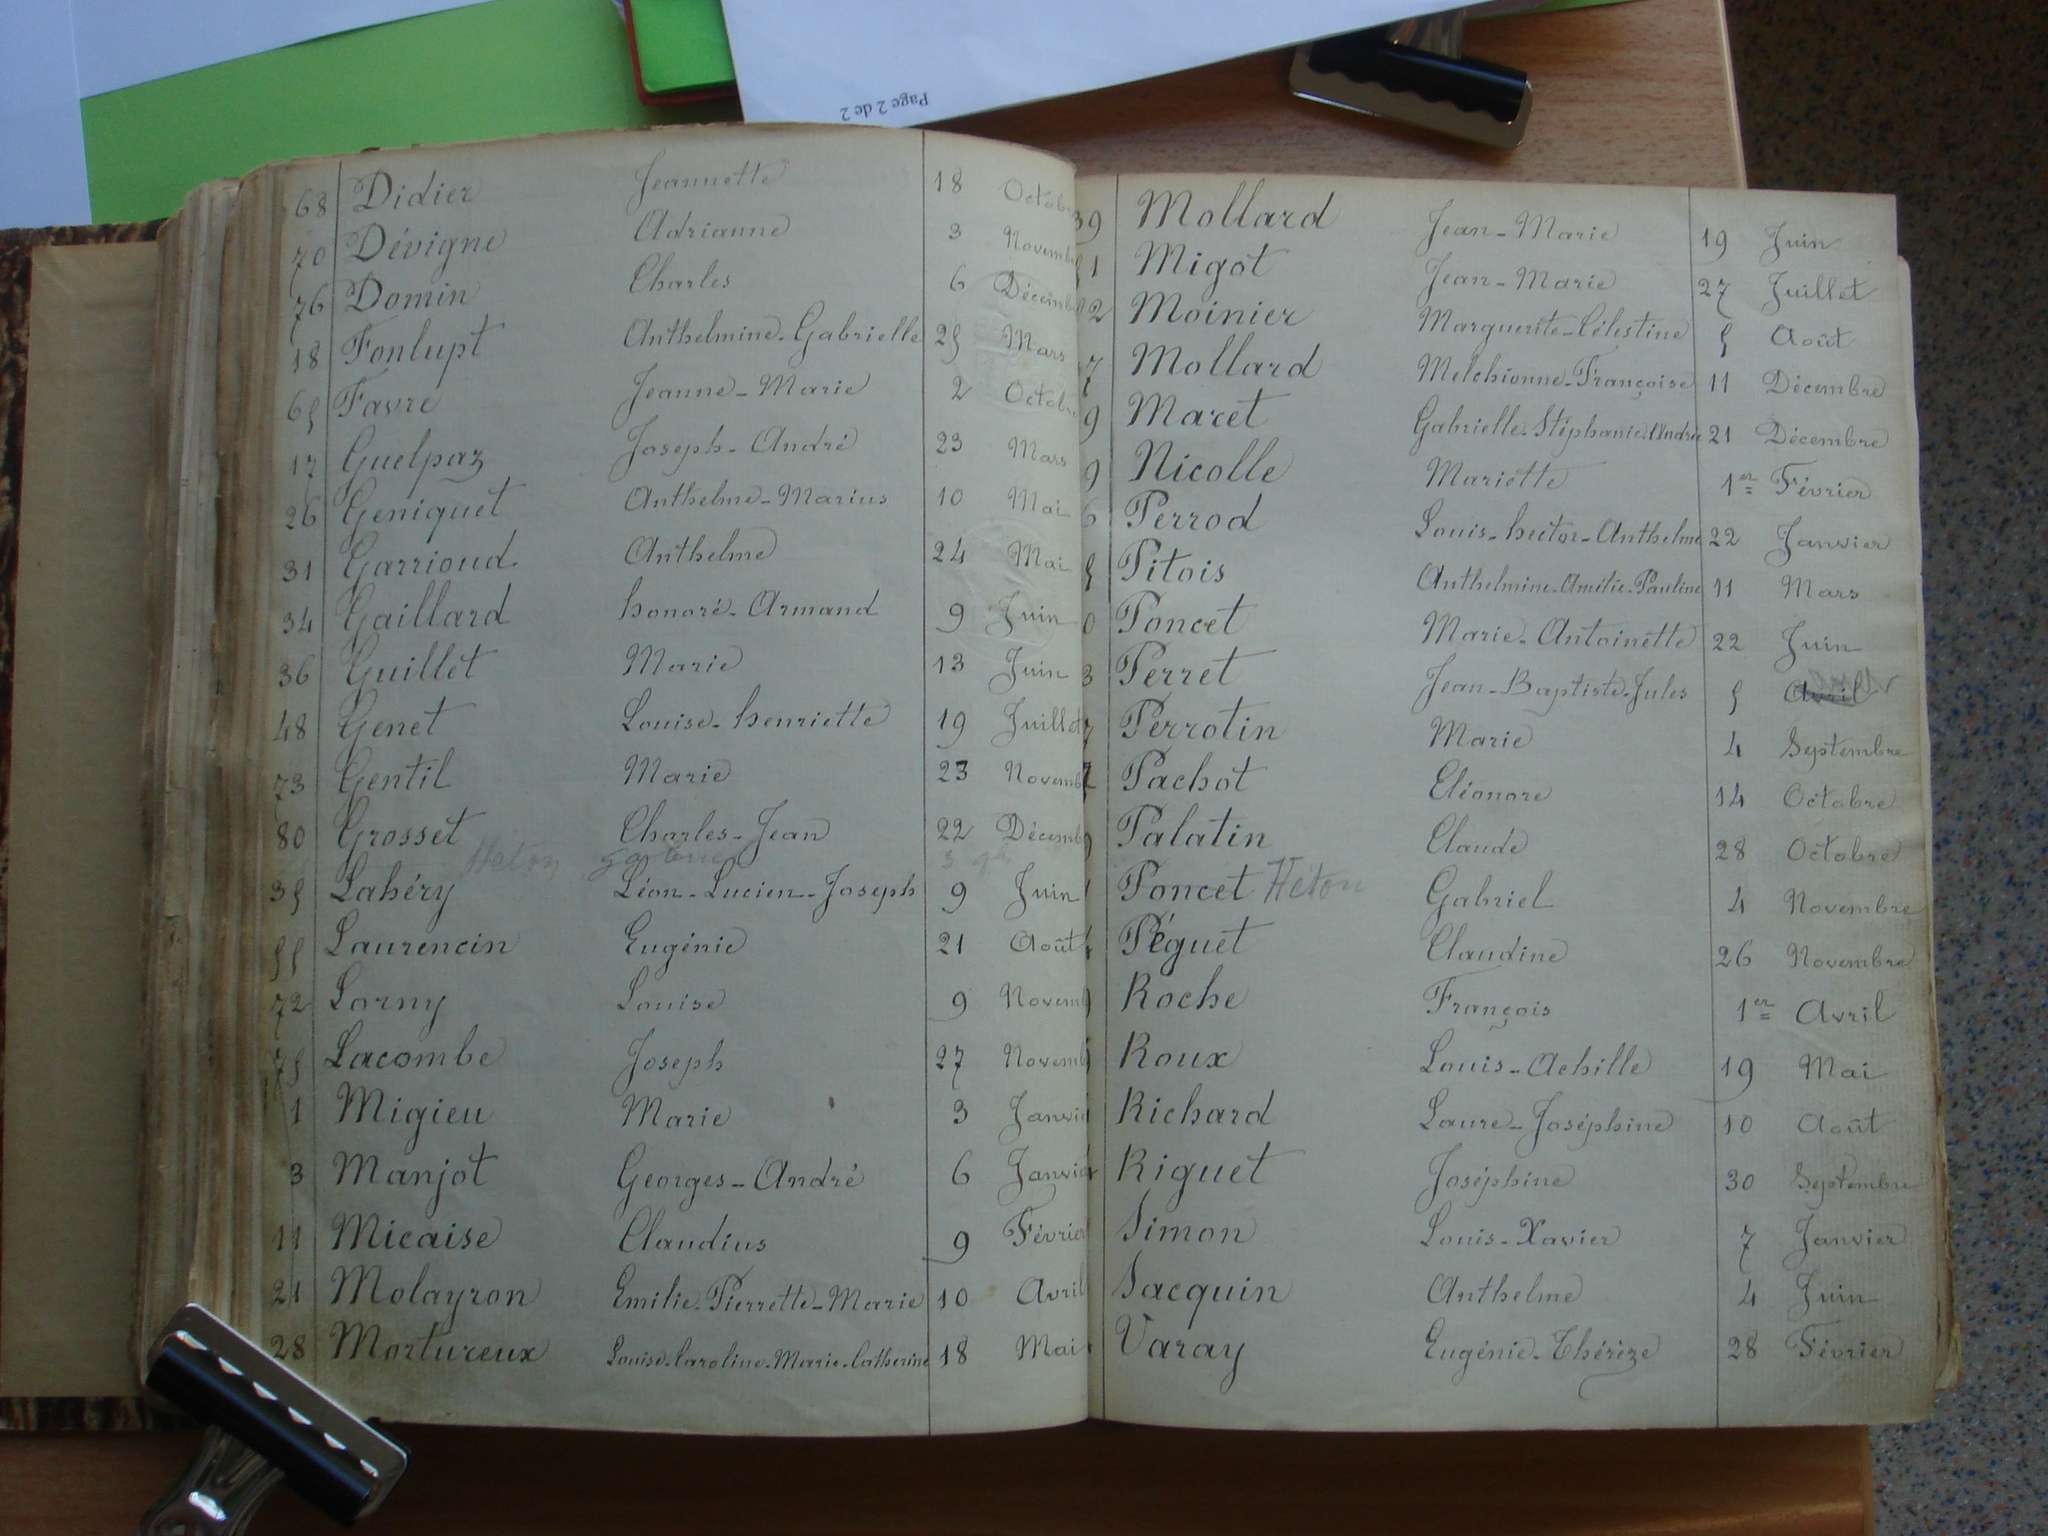 Page 2 de 2
68 Didier Jeannette 18 Octobre
70 Dévigne Adrianne 3 Novemb
76 Domin Charles 6 Décemb
18 Fonlupt Anthelmine-Gabrielle 25 Mars
65 Favre Jeanne-Marie 2 Octobre
17 Guelpaz Joseph-André 23 Mars
26 Geniquet Anthelme-Marius 10 Mai
31 Garrioud Anthelme 24 Mai
34 Gaillard honoré-Armand 9 Juin
36 Guillet Marie 13 Juin
48 Genet Louise-henriette 19 Juillet
73 Gentil Marie 23 Novemb
80 Grosset Charles-Jean 22 Décemb
35 Lahéry Léon-Lucien-Joseph 9 Juin
55 Laurencin Eugénie 21 Août
72 Lorny Louise 9 Novem
75 Lacombe Joseph 27 Novemb
1 Migieu Marie 3 Janvi
3 Manjot Georges-André 6 Janvi
11 Micaise Claudius 9 Février
21 Molayron Emilie-Pierrette-Marie 10 Avril
28 Mortureux Louise-Caroline-Marie-Catherine 18 Mai
39 Mollard Jean-Marie 19 Juin
1 Migot Jean-Marie 27 Juillet
2 Moinier Marguerite-Célestine 5 Août
7 Mollard Melchionne-Françoise 11 Décembre
9 Maret Gabrielle-Stéphanie-Andrée 21 Décembre
9 Nicolle Mariette 1er Février
6 Perrod Louis-hector-Anthelme 22 Janvier
5 Pitois Anthelmine-Amélie-Pauline 11 Mars
0 Poncet Marie-Antoinette 22 Juin
3 Perret Jean-Baptiste-Jules 5 Avril
7 Perrotin Marie 4 Septembre
Pachot Eléonore 14 Octobre
Palatin Claude 28 Octobre
Poncet Héton Gabriel 4 Novembre
Péguet Claudine 26 Novembre
Roche François 1er Avril
Roux Louis-Achille 19 Mai
Richard Laure-Joséphine 10 Août
Riguet Joséphine 30 Septembre
Simon Louis-Xavier 7 Janvier
Sacquin Anthelme 4 Juin
Varay Eugénie-Thérèze 28 Février